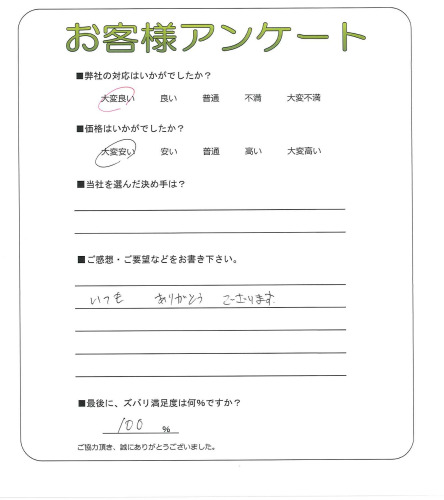 お客様アンケート
■弊社の対応はいかがでしたか？
大変良い 良い 普通 不満 大変不満
■価格はいかがでしたか？
大変安い 安い 普通 高い 大変高い
■当社を選んだ決め手は？
■ご感想・ご要望などをお書き下さい。
いつも ありがとう ございます。
■最後に、ズバリ満足度は何％ですか？
100 ％
ご協力頂き、誠にありがとうございました。